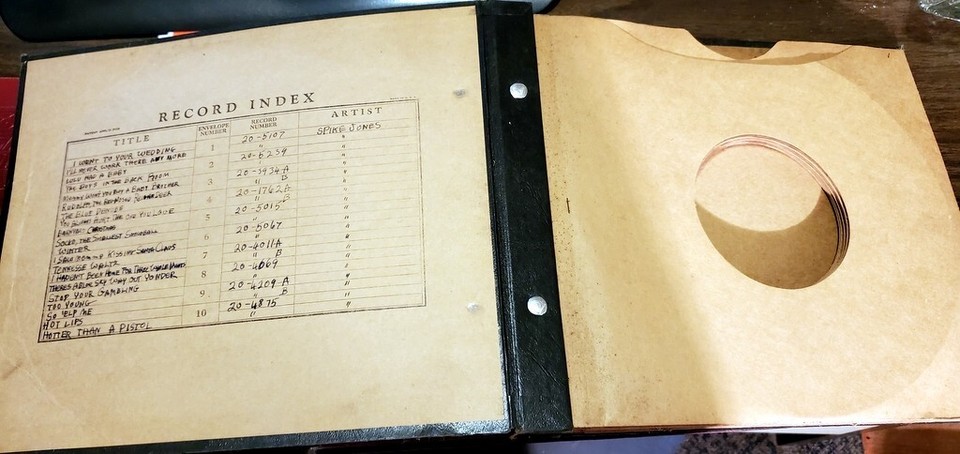 RECORD INDEX
TITLE ENVELOPE NUMBER RECORD NUMBER ARTIST
I WENT TO YOUR WEDDING 1 20-5107 SPIKE JONES
I'LL NEVER WORK THERE ANY MORE " "
LULU HAD A BABY 2 20-5239 "
THE BOYS IN THE BACK ROOM " "
MOMMY WON'T YOU BUY A BABY BROTHER 3 20-3934 A "
RUDOLPH THE RED NOSE REINDEER " B "
THE BLUE DANUBE 4 20-1762 A "
YOU ALWAYS HURT THE ONE YOU LOVE " B "
BARNYARD CHRISTMAS 5 20-5015 "
SOCKO THE SMALLEST SNOWBALL "
WINTER 6 20-5067 "
I SAW MOMMY KISSING SANTA CLAUS "
TENNESSE WALTZ 7 20-4011-A "
I HAVEN'T BEEN HOME FOR THREE WHOLE NIGHTS " B "
THERES A BLUE SKY WAY OUT YONDER 8 20-4069 "
STOP YOUR GAMBLING " "
TOO YOUNG 9 20-4209 A "
SO 'ELP ME " B "
HOT LIPS 10 20-4875 "
HOTTER THAN A PISTOL " "